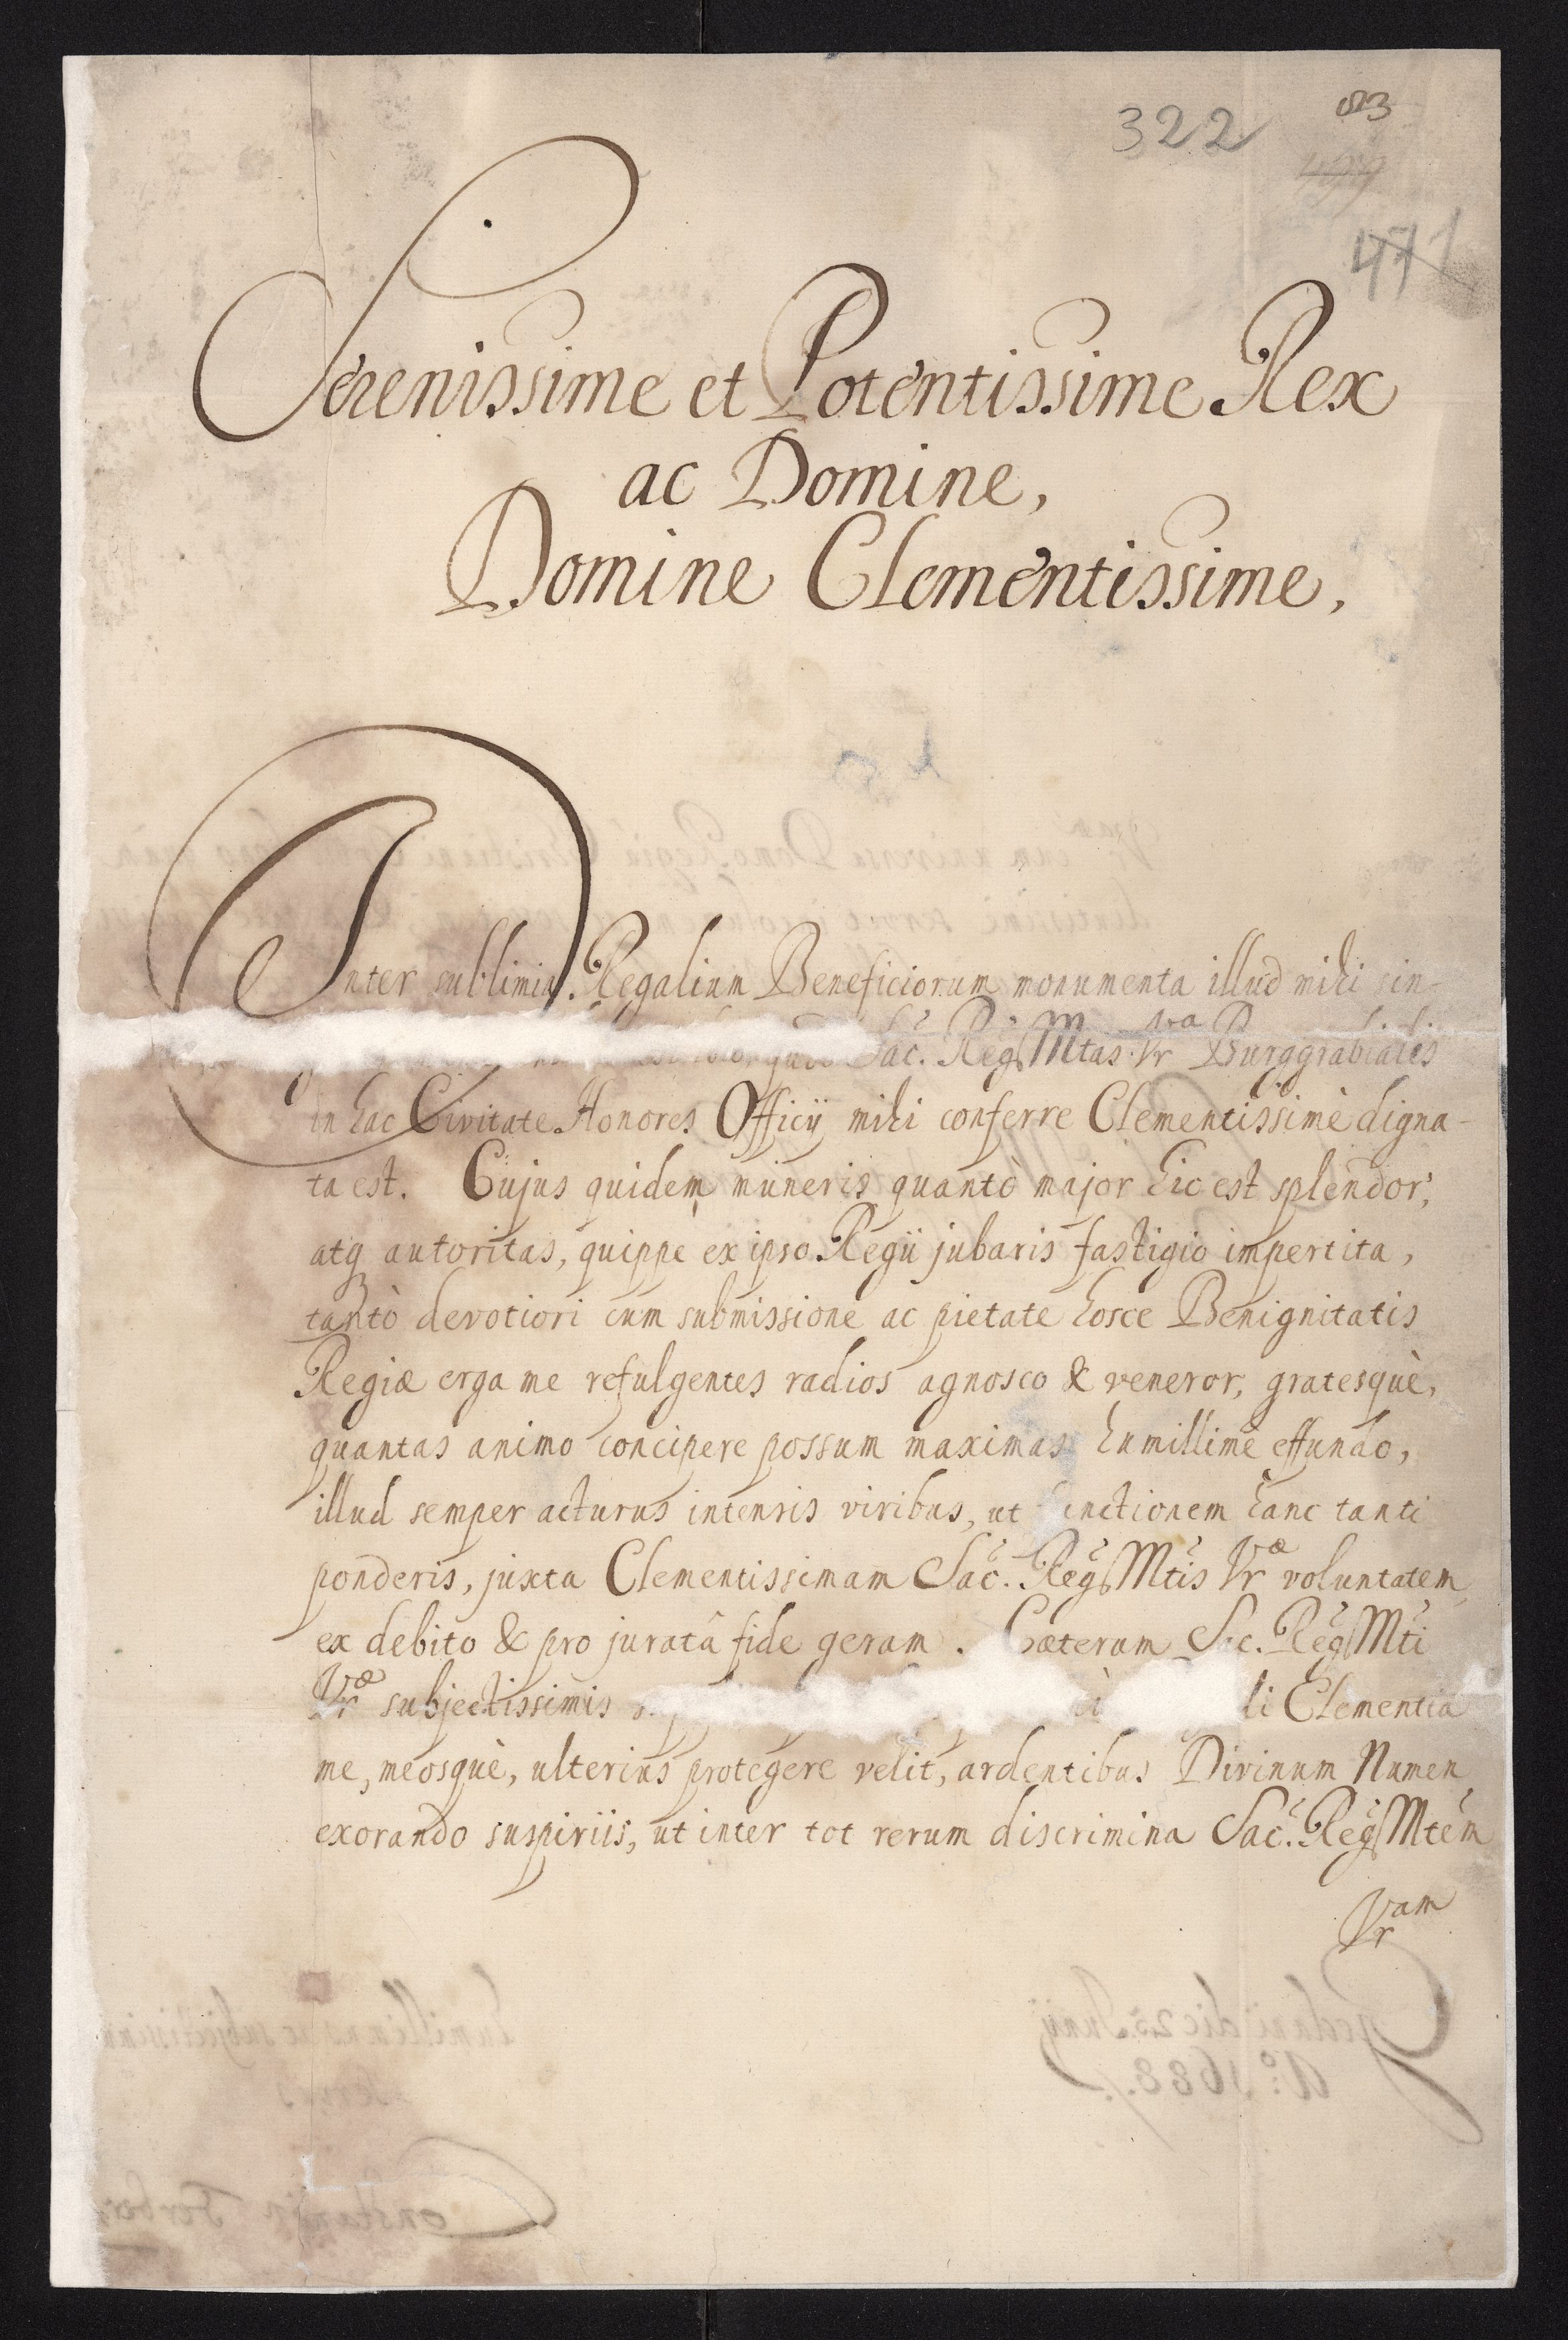 322
Serenissime et Potentissime Rex
ac Domine,
Domine Clementissime,
Inter sublimia Regalium Beneficiorum monumenta illud mihi sin-
Sac. Reg. Mtas Vra Burggrabialis
in hac Civitate Honores Officij mihi conferre Clementissimè digna-
ta est. Cujus quidem muneris quantò major hic est splendor,
atq autoritas, quippe ex ipso Regii jubaris fastigio impertita,
tantò devotiori cum submissione ac pietate hosce Benignitatis
Regiæ erga me refulgentes radios agnosco & veneror, gratesquè,
quantas animo concipere possum maximas humillimè effundo,
illud semper acturus intensis viribus, ut nctionem hanc tanti
ponderis, juxta Clementissimam Sac. Reg. Mtis Vræ voluntatem,
ex debito & pro juratâ fide geram. Cæterum Sac. Reg. Mti
Vræ subjectissimis li Clementia
me, meosquè, ulterius protegere velit, ardentibus Divinum Numen
exorando suspiriis, ut inter tot rerum discrimina Sac. Reg. Mtem
Vram